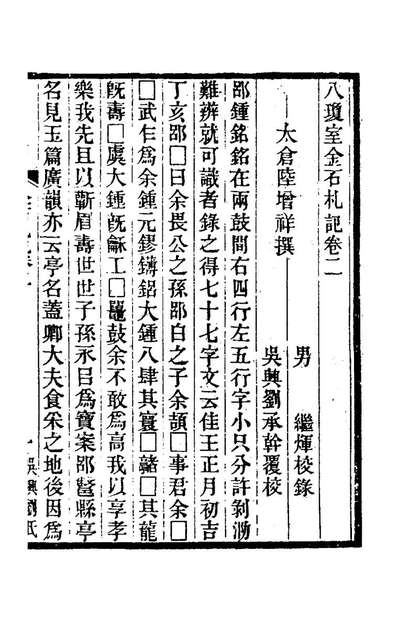 八瓊室金石札記卷二
太倉陸增祥撰
男　繼煇校錄
吳興劉承幹覆校
邵鍾銘銘在兩鼓間右四行左五行字小只分許剝泐
難辨就可識者錄之得七十七字文云隹王正月初吉
丁亥邵□曰余畏公之孫邵白之子余頡□事君余□
□武乍爲余鍾元鏐鏄鋁大鍾八肆其竃□䜪□其龍
旣壽□虡大鍾旣龢工□鼉鼓余不敢爲高我以享孝
樂我先且以蘄眉壽世世子孫永㠯爲寶案邵鄨縣亭
名見玉篇廣韻亦云亭名蓋卿大夫食采之地後因爲
吳興劉氏